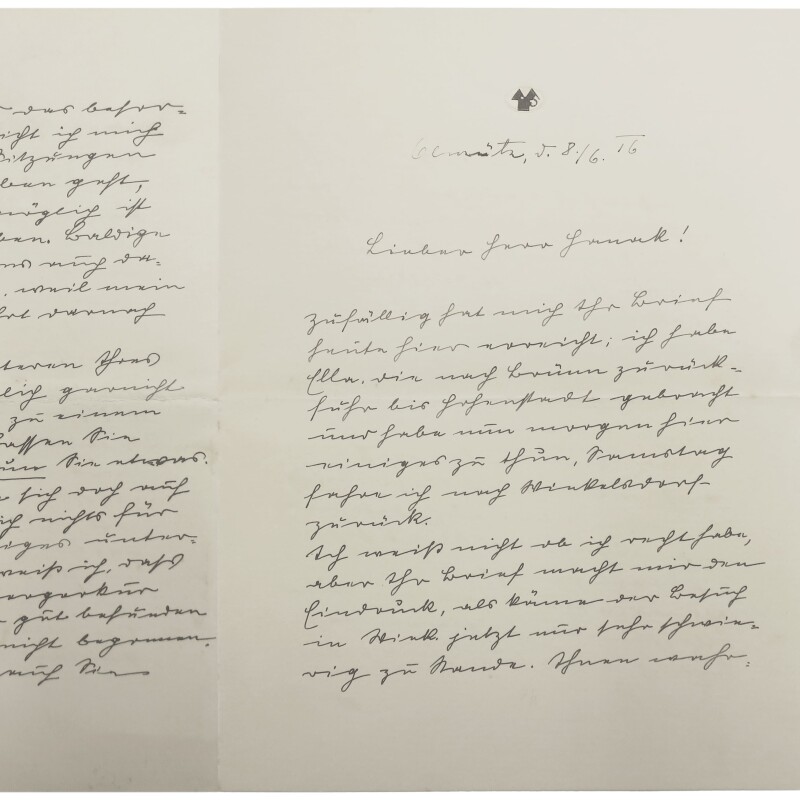 das besor-
nicht ich mich
Sitzungen
geht,
möglich ist
Baldige
auch da-
weil mein
darnach
teren Ihres
garnicht
zu einem
Lassen Sie
Sie etwas.
sich doch auf
nichts für
iges unter-
weiß ich, dass
gut befunden
nicht begonnen.
auch Sie
Olmütz, d. 8./6. 16
Lieber Herr Hanak!
Zufällig hat mich Ihr Brief
heute hier erreicht; ich habe
Ella, die nach Brünn zurück-
fuhr bis Hohenstadt gebracht
und habe nun morgen hier
einiges zu thun, Samstag
fahre ich nach Winkelsdorf
zurück.
Ich weiß nicht ob ich recht habe,
aber Ihr Brief macht mir den
Eindruck, als käme der Besuch
in Wink. jetzt nur sehr schwie-
rig zu Stande. Ihnen wahr-